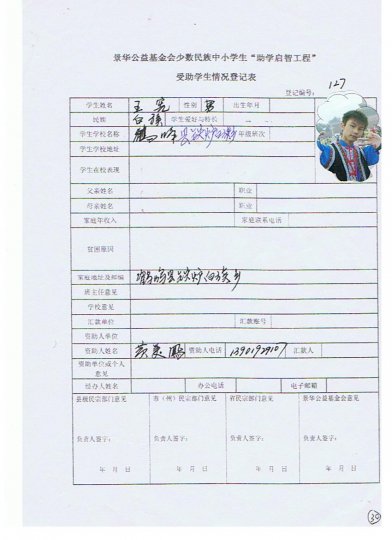 景华公益基金会少数民族中小学生“助学启智工程”
受助学生情况登记表
登记编号: 127
学生姓名 王亮 性别 男 出生年月
民族 白族 学生爱好与特长
学生学校名称 鹤峰县铁炉白族乡 年级班次
学生学校地址
学生在校表现
父亲姓名 职业
母亲姓名 职业
家庭年收入 家庭联系电话
贫困原因
家庭地址及邮编 鹤峰县铁炉白族乡
班主任意见
学校意见
汇款单位 汇款账号
资助人单位
资助人姓名 资助人电话 汇款人
资助单位或个人
意见
经办人姓名 办公电话 电子邮箱
县级民宗部门意见 市（州）民宗部门意见 省民宗部门意见 景华公益基金会意见
负责人签字: 负责人签字: 负责人签字: 负责人签字:
年 月 日 年 月 日 年 月 日 年 月 日
39